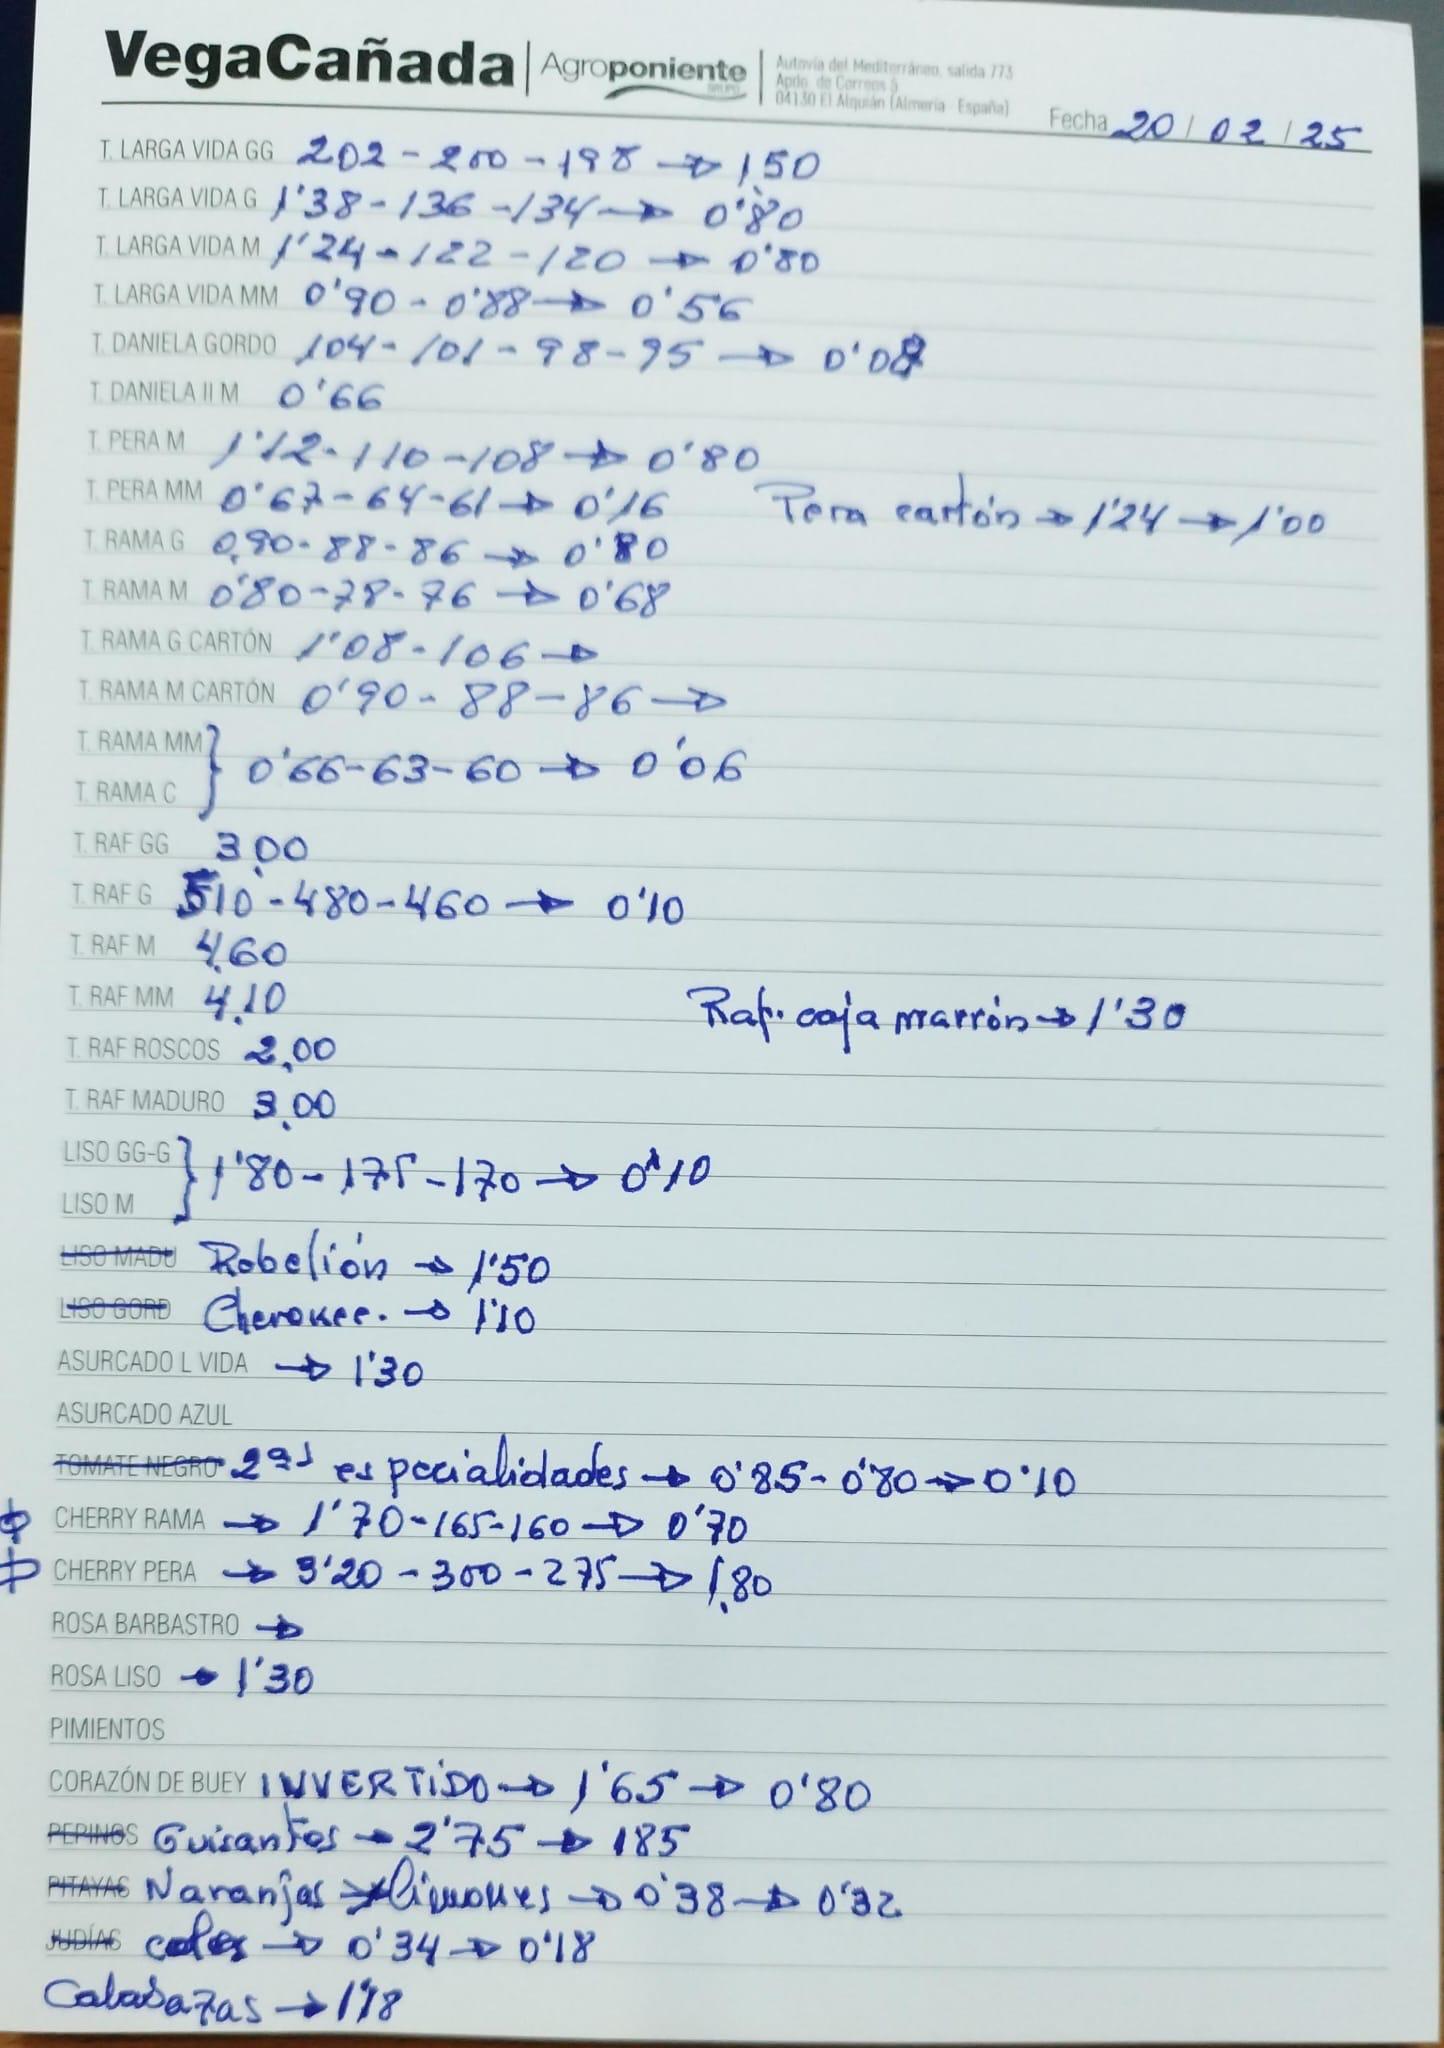 VegaCañada | Agroponiente GRUPO
Autovía del Mediterráneo, salida 773
Apdo. de Correos 5
04130 El Alquián (Almería - España)
Fecha 20 / 02 / 25
T. LARGA VIDA GG 202 - 200 - 198 → 1,50
T. LARGA VIDA G 1'38 - 136 - 134 → 0'80
T. LARGA VIDA M 1'24 - 122 - 120 → 0'80
T. LARGA VIDA MM 0'90 - 0'88 → 0'56
T. DANIELA GORDO 104 - 101 - 98 - 95 →
T. DANIELA II M 0'66
T. PERA M 1'12 - 110 - 108 → 0'80
T. PERA MM 0'67 - 64 - 61 → 0'16
Pera cartón → 1'24 → 1'00
T. RAMA G 0,90 - 88 - 86 → 0'80
T. RAMA M 0'80 - 78 - 76 → 0'68
T. RAMA G CARTÓN 1'08 - 106 →
T. RAMA M CARTÓN 0'90 - 88 - 86 →
T. RAMA MM } 0'66 - 63 - 60 → 0'06
T. RAMA C
T. RAF GG 3,00
T. RAF G 510 - 480 - 460 → 0'10
T. RAF M 4,60
T. RAF MM 4,10
Raf. caja marrón → 1'30
T. RAF ROSCOS 2,00
T. RAF MADURO 3,00
LISO GG-G } 1'80 - 175 - 170 → 0'10
LISO M
LISO MADU Rebelión → 1'50
LISO GORD Cherokee. → 1'10
ASURCADO L VIDA → 1'30
ASURCADO AZUL
TOMATE NEGRO 2as especialidades → 0'85 - 0'80 → 0'10
CHERRY RAMA → 1'70 - 165 - 160 → 0'70
CHERRY PERA → 3'20 - 300 - 275 → 1,80
ROSA BARBASTRO →
ROSA LISO → 1'30
PIMIENTOS
CORAZÓN DE BUEY INVERTIDO → 1'65 → 0'80
PEPINOS Guisantes → 2'75 → 185
PITAYAS Naranjas limones → 0'38 → 0'32
JUDÍAS coles → 0'34 → 0'18
Calabazas → 1'18